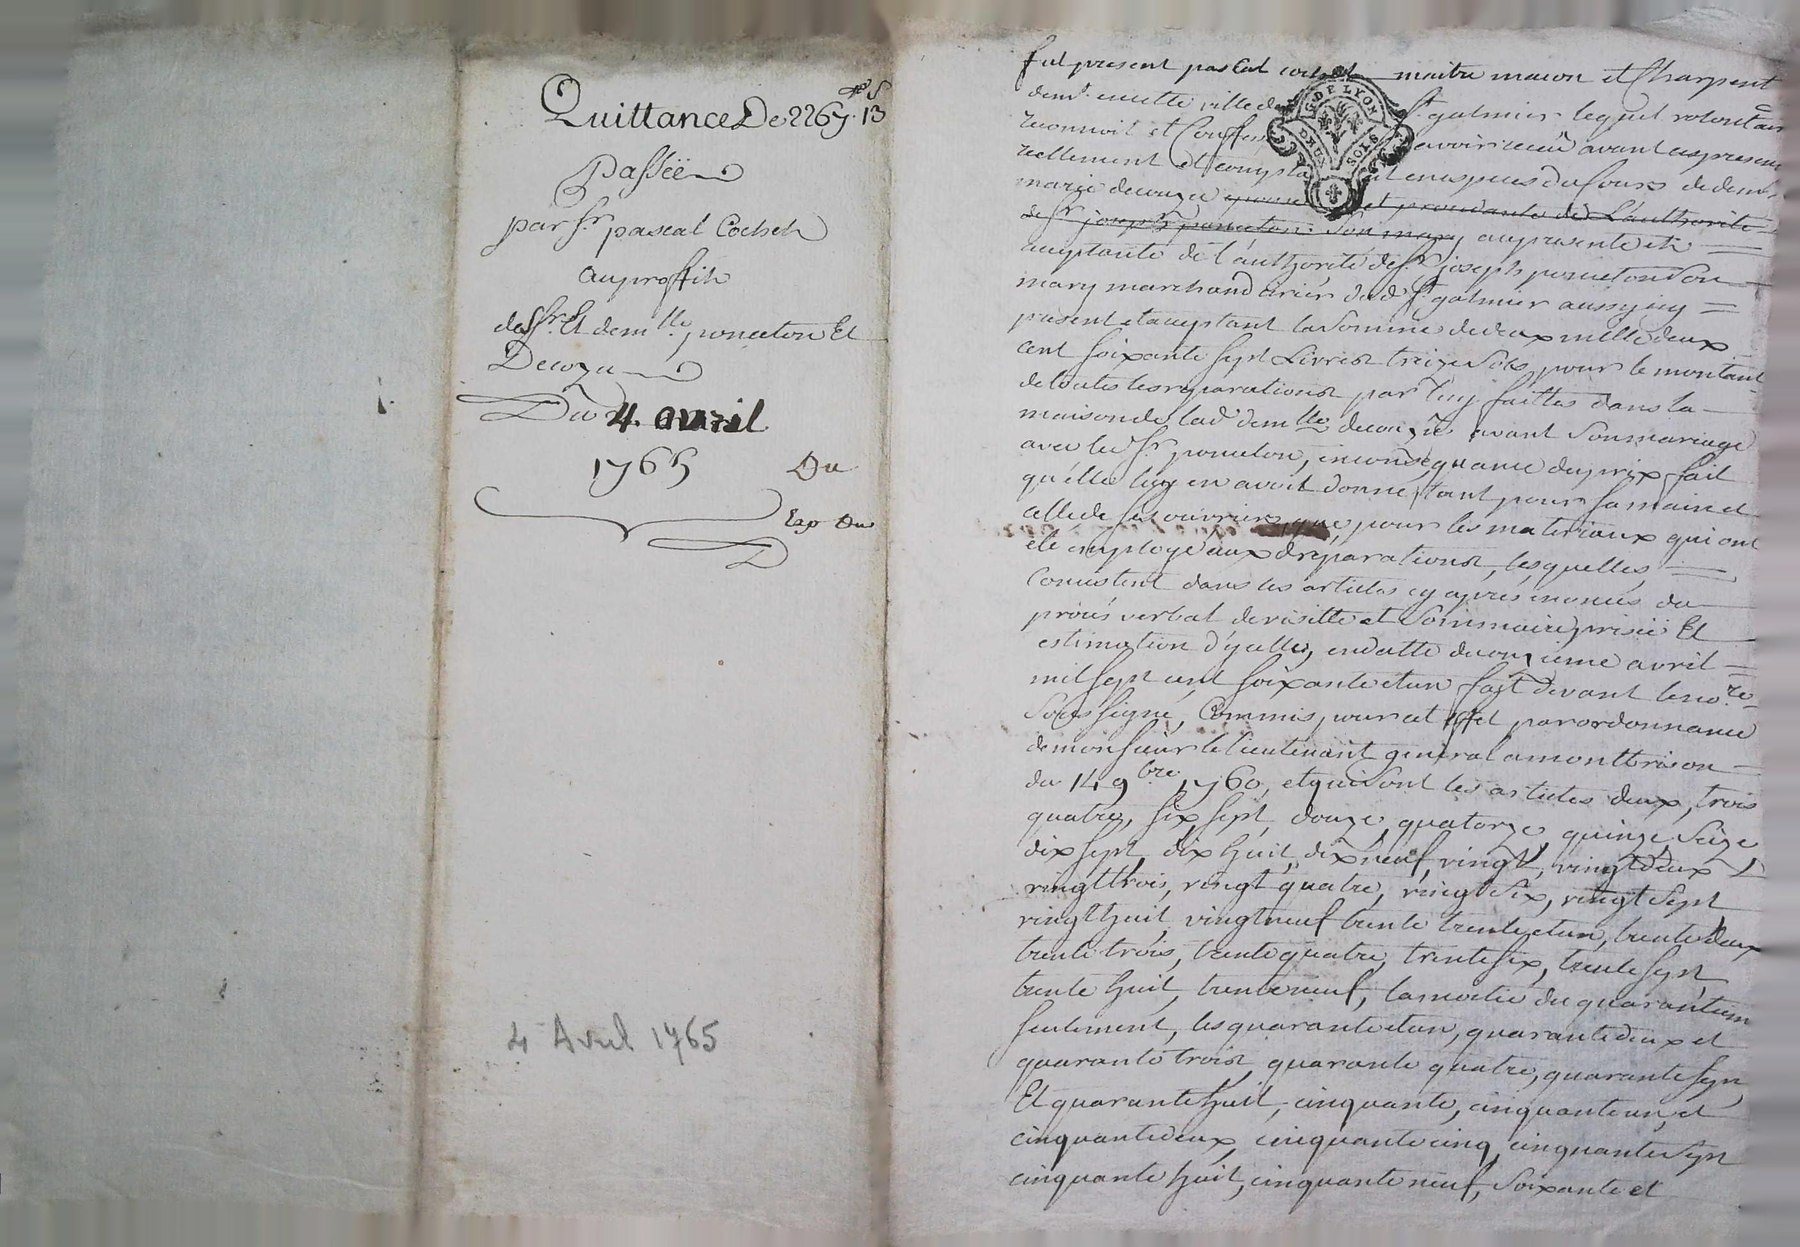 Quittance De 2267 ₶ 13 s
Passëë
par Sr. pascal Cochet
au proffit
des Srs. Et demlle. ponceton Et
Decoza
Du 4. avril
1765 Du
Exp Du
4 Avril 1765
fut present pascal cochet maitre macon et Charpent
demt. en cette ville de St. galmier lequel volontair
reconnoit et Confesse avoir receu avant ces presen
reellement et compta en especes du Cours de dem.
marie decoza et procedante de L'authorité
de Sr. joseph ponceton son mary cy presente et
acceptante de l'authorité de Sr. joseph ponceton Son
mary marchand cirier dud. St. galmier aussy icy
present et acceptant la Somme de deux mille deux
cent soixante sept Livres treize Sols pour le montant
de toutes les reparations par luy faittes dans la
maison de lad. demlle decoza avant Son mariage
avec led. Sr. ponceton, en consequance du prix fait
qu'elle luy en avoit donné, tant pour sa main et
celle de ses ouvriers, que pour les materiaux qui ont
eté employé aux d. reparations, lesquelles
Consistent dans les articles cy aprés enoncés du
procés verbal de visitte et Sommaire prisëë Et
estimation d'ycelles, en datte du onzieme avril
mil sept cent soixante et un fait devant le nore.
Soussigné, Commis pour cet effet par ordonnance
de monsieur le lieutenant general a montbrison
du 14 9bre 1760, et qui sont les articles deux, trois
quatre, six sept, douze, quatorze, quinze, seize,
dix sept, dix huit, dix neuf, vingt, vingt deux
vingt trois, vingt quatre, vingt six, vingt sept
vingt huit, vingt neuf trente trente et un, trente deux
trente trois, trente quatre, trente six, trente sept,
trente huit, trente neuf, la moitié du quarantiem
seulement, les quarante et un, quarante deux et
quarante trois, quarante quatre, quarante sept,
Et quarante huit, cinquante, cinquante un, et
cinquante deux, cinquante cinq, cinquante sept
cinquante huit, cinquante neuf, soixante et
G. DE LYON
DEUX SOLS